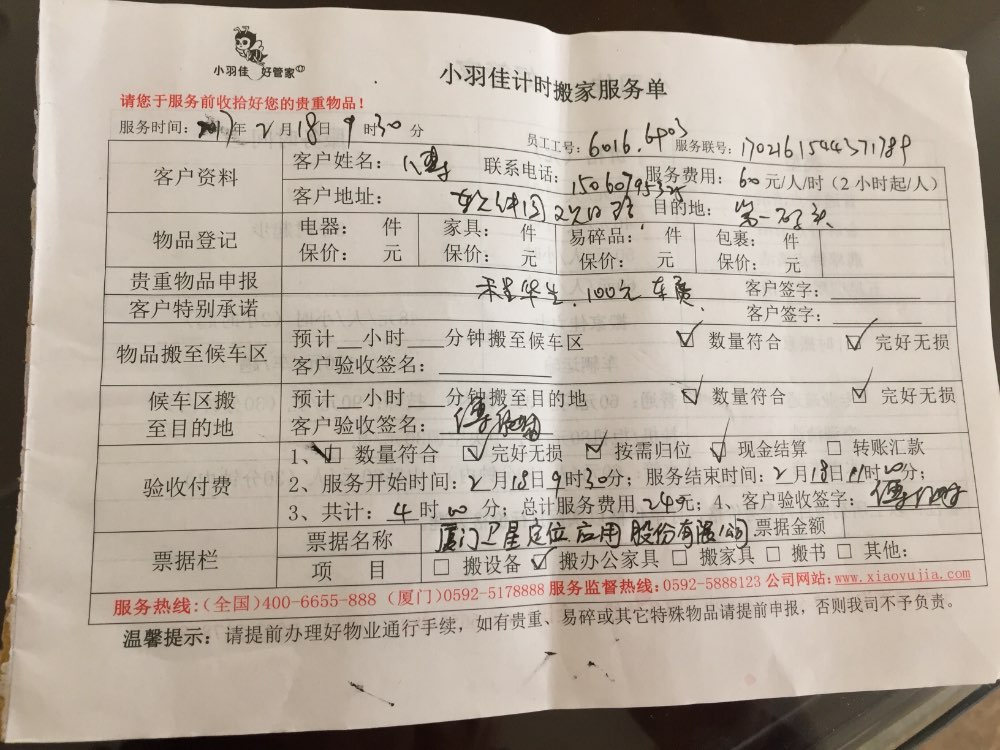 小羽佳 好管家
小羽佳计时搬家服务单
请您于服务前收拾好您的贵重物品！
服务时间：2017年2月18日9时30分 员工工号：6016.6403 服务联号：1702161544371789
客户资料 客户姓名： 联系电话： 服务费用：60元/人/时（2小时起/人）
客户地址：软件园 目的地：第一码头
物品登记 电器： 件 家具： 件 易碎品： 件 包裹： 件
保价： 元 保价： 元 保价： 元 保价： 元
贵重物品申报 100元车费 客户签字：
客户特别承诺 客户签字：
物品搬至候车区 预计__小时___分钟搬至候车区 ☑ 数量符合 ☑ 完好无损
客户验收签名：
候车区搬至目的地 预计__小时___分钟搬至目的地 ☑ 数量符合 ☑ 完好无损
客户验收签名：
验收付费 1、☑ 数量符合 ☑ 完好无损 ☑ 按需归位 ☑ 现金结算 □ 转账汇款
2、服务开始时间：2月18日9时30分；服务结束时间：2月18日11时00分；
3、共计：4时00分；总计服务费用240元；4、客户验收签字：
票据栏 票据名称 厦门卫星定位应用股份有限公司 票据金额
项 目 □ 搬设备 ☑ 搬办公家具 □ 搬家具 □ 搬书 □ 其他：
服务热线：(全国)400-6655-888 (厦门)0592-5178888 服务监督热线：0592-5888123 公司网站：www.xiaoyujia.com
温馨提示：请提前办理好物业通行手续，如有贵重、易碎或其它特殊物品请提前申报，否则我司不予负责。